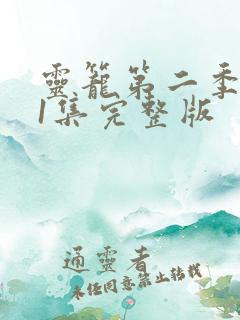 靈籠第二季
1集完整版
通靈者
未经同意禁止转载